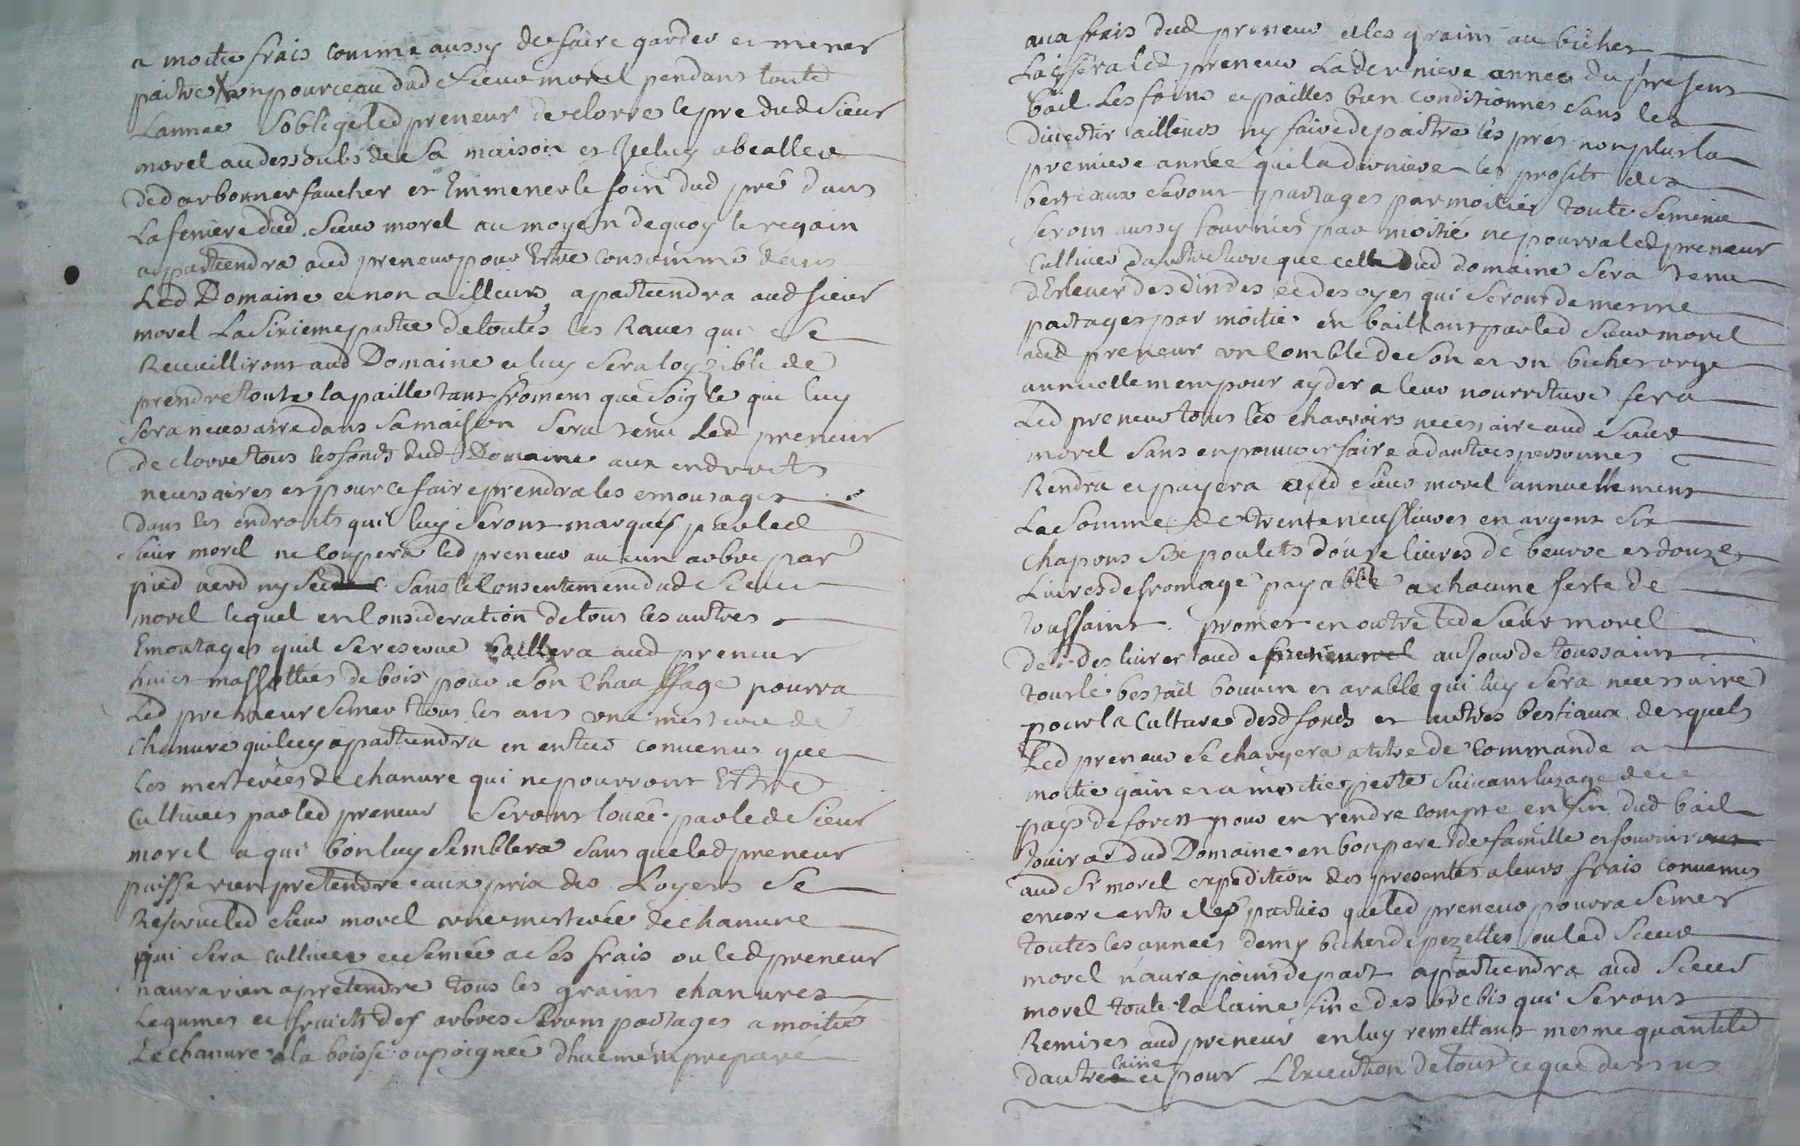 a moitié frais comme aussy de faire garder et mener
paitre un pourceau dud Sieur morel pendant toute
Lannee Soblige led preneur de clorre le pre dud Sieur
morel au dessoubs de sa maison et Iceluy
faucher et Emmener le foin dud pré dans
La feniere dud. Sieur morel au moyen de quoy le regain
apartiendra aud preneur pour Etre consommé dans
Led Domaine et non ailleurs, apartiendra aud sieur
morel La sixieme partie de toutes les Raves qui se
Recueilliront aud Domaine et luy sera loysible de
prendre toute la paille tant froment que soigle qui luy
Sera necessaire dans sa maison Sera tenu Led preneur
de clorre tous les fonds dud Domaine aux endroits
necessaires et pour ce faire prendra les emoutages
dans les endroits qui luy seront marqués par led
Sieur morel ne coupera led preneur aucun arbre par
pied verd ny sec sans le consentement dud Sieur
morel lequel en Consideration de tous les autres
Emoutages quil se reserve baillera aud preneur
huict massottées de bois pour son chauffage pourra
Led preneur semer tous les ans une mesterée de
chanvre qui luy apartiendra en entier convenus que
Les mesterées de chanvre qui ne pourront Etre
Cultivées par led preneur Seront louée par led Sieur
morel a qui bon luy semblera sans que led preneur
puisse rien pretendre aux prix des Loyers Se
Reserve led Sieur morel une mesterée de chanvre
qui sera cultivée et semée a ses frais ou led preneur
naura rien a pretendre tous les grains chanvres
Legumes et fruicts des arbres seront partages a moitié
Le chanvre a la boisse ou poignée preparé
aux frais dud preneur et les grains au bichet
Laissera led preneur La derniere annee du present
bail Les foins et pailles bien conditionnes sans les
divertir ailleurs ny faire depaitre les pres non plus la
premiere année que la derniere les profits des
bestiaux seront partages par moitié toute semence
seront aussy fournies par moitié ne pourra led preneur
Cultiver dautre terre que celle dud domaine sera tenu
dElever des dindes et des oyes qui seront de mesme
partages par moitié en baillant par led Sieur morel
aud preneur un comble de son et un bichet orge
annuellement pour ayder a leur nourriture fera
Led preneur tous les charrois necessaire aud Sieur
morel sans en pouvoir faire a dautres personnes
Rendra et payera aud Sieur morel annuellement
La somme de trente neuf livres en argent six
Chapons six poulets douze livres de beurre et douze
Livres de fromage payable a chacune feste de
toussaint. promet en outre led Sieur morel
de delivrer aud preneur au jour de toussaint
tout le bestail bouvin et arable qui luy sera necessaire
pour la Culture desd fonds et autres bestiaux desquels
Led preneur se chargera a titre de Commande a
moitié gain et a moitié perte suivant lusage de ce
pays de forest pour en rendre compte en fin dud bail
Jouira dud Domaine en bon pere de famille et fournirons
aud Sr morel expedition des presentes a leurs frais convenus
encore entre les parties que led preneur pourra semer
toutes les annees demy bichet de pezettes ou led Sieur
morel n'aura point de part apartiendra aud Sieur
morel toute la laine fine des brebis qui seront
Remises aud preneur en luy remettant mesme quantité
dautre laine et pour LExecution de tout ce que dessus